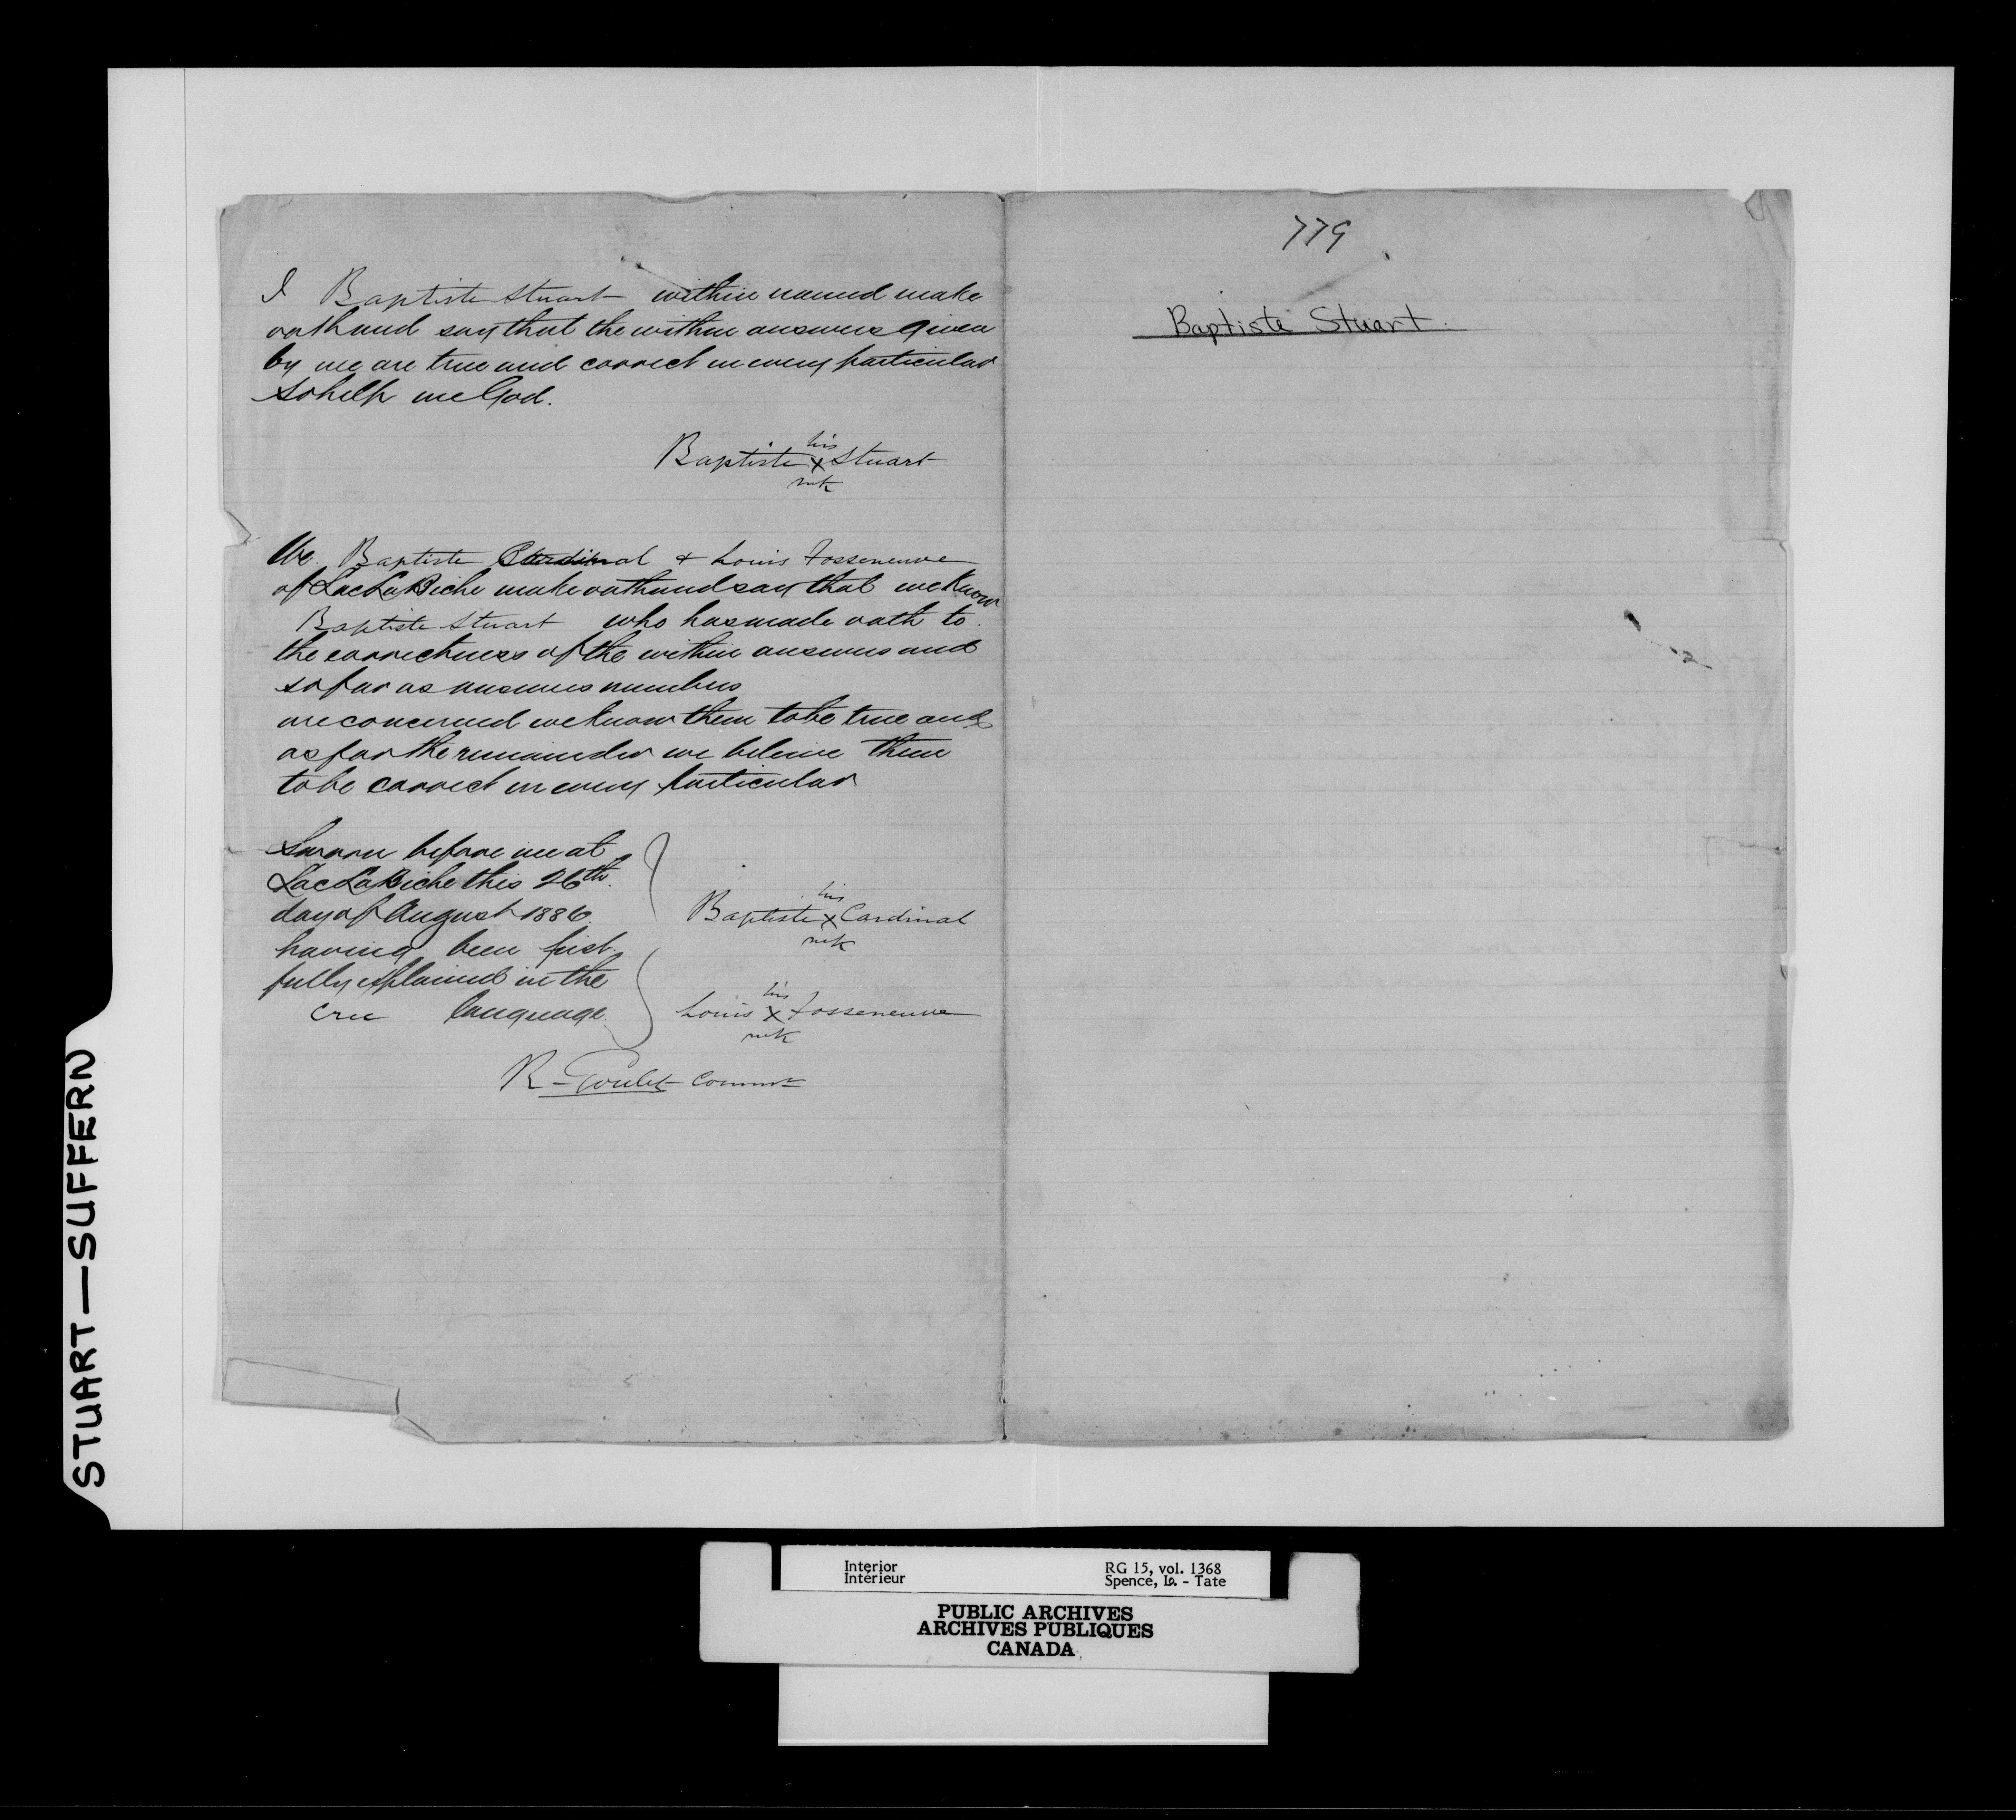 I Baptiste Stuart within named make
oath and say that the within answers given
by me are true and correct in every particular
So help me God.
his
Baptiste X Stuart
mk
We Baptiste Cardinal & Louis Fosseneuve
of Lac La Biche make oath and say that we know
Baptiste Stuart who has made oath to
the correctness of the within answers and
so far as answers numbers
are concerned we know them to be true and
as for the remainder we beleive them
to be correct in every particular
Sworn before me at
Lac La Biche this 26th
day of August 1886
having been first
fully explained in the
Cree language
his
Baptiste X Cardinal
mk
his
Louis X Fosseneuve
mk
R. Goulet Commr
779
Baptiste Stuart.
STUART—SUFFERN
Interior
Intérieur
RG 15, vol. 1368
Spence, Lo. - Tate
PUBLIC ARCHIVES
ARCHIVES PUBLIQUES
CANADA